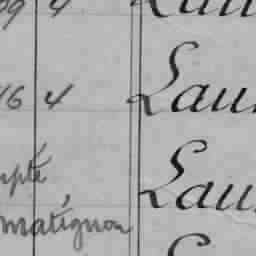 09 4 Lau
16 4 Lau
mpté Lau
Matignon